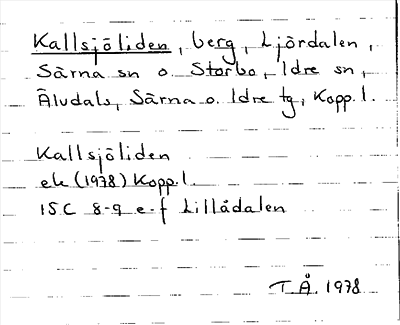 Kallsjöliden, berg, Ljördalen,
Särna sn o. Storbo, Idre sn,
Älvdals, Särna o. Idre tg, Kopp. l.
Kallsjöliden
ek (1978) Kopp. l.
15C 8-9 e-f Lillådalen
T Å. 1978